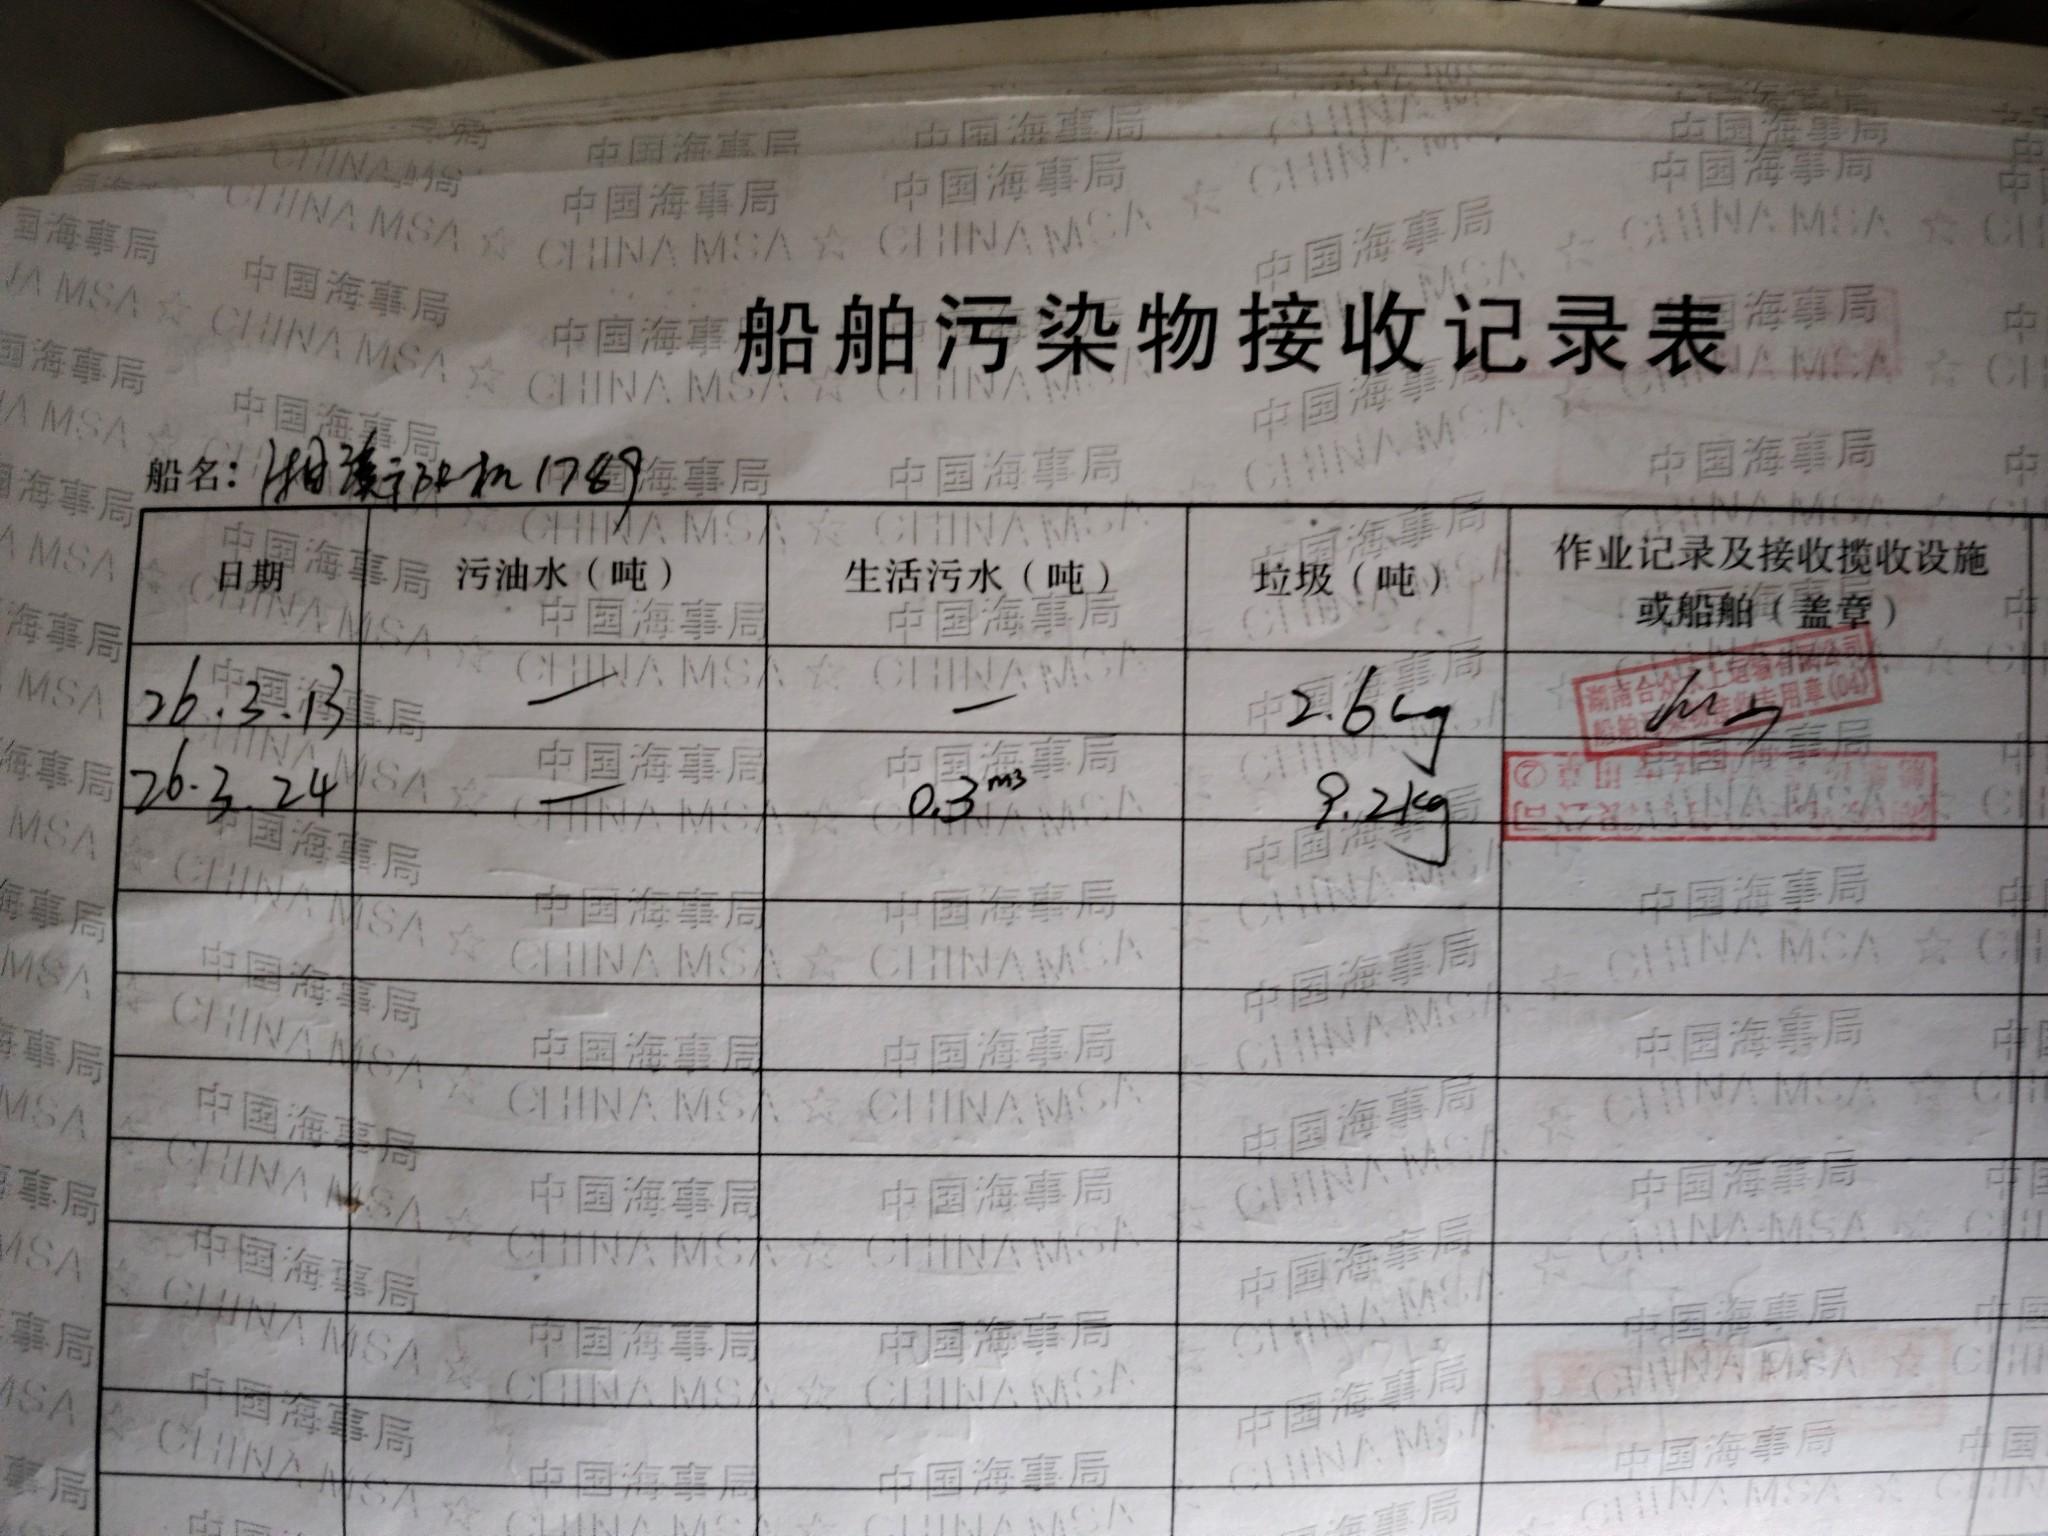 船舶污染物接收记录表
船名：湘汉寿机1789
日期 污油水（吨） 生活污水（吨） 垃圾（吨） 作业记录及接收揽收设施
或船舶（盖章）
26.3.13 — — 2.6kg
湖南合众水上运输有限公司
船舶污染物接收专用章(04)
26.3.24 — 0.3m3 9.2kg
中国海事局
CHINA MSA